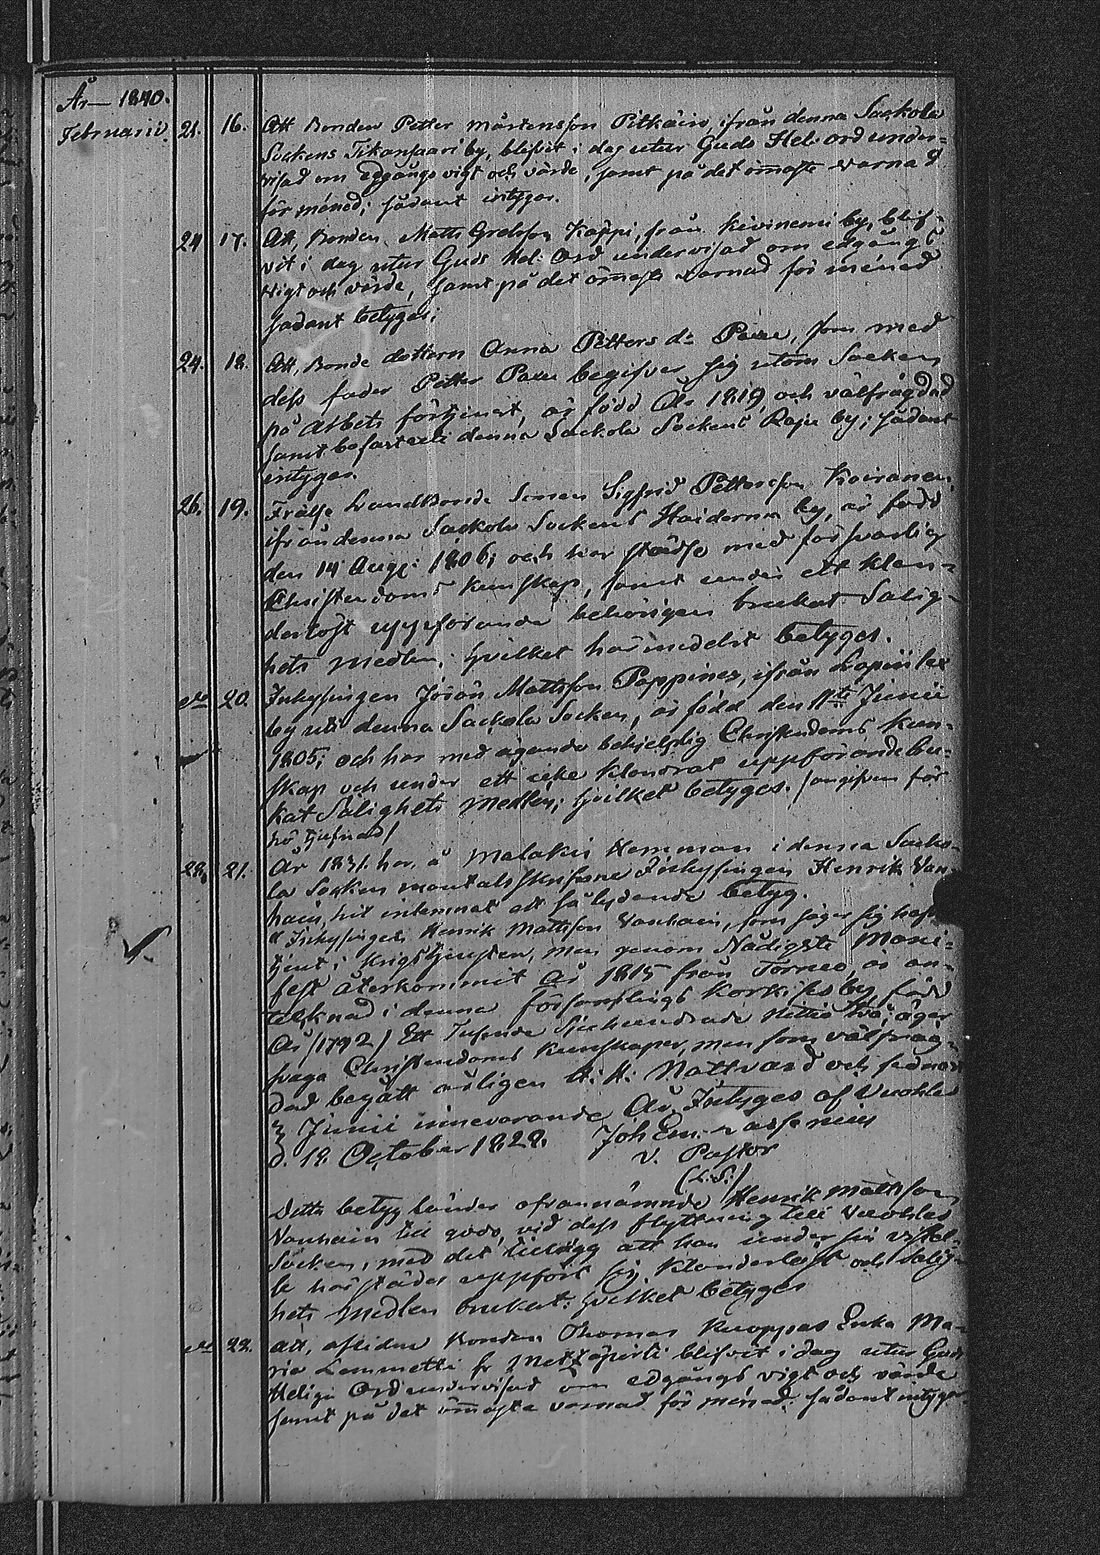 År 1840.
Februarii. 21. 16. Att Bonden Petter Mårtensson Pitkäin, ifrån denna Sackola
Sockens Tikansaari by, blifvit i dag utur Guds Hel. ord under-
visad om edgångs vigt och värde, samt på det ömaste varnad
för méned; sådant intygas.
24 17. Att, Bonden Matts Käppi, från Kiviniemi by, blif-
vit i dag utur Guds Hel. Ord undervisad om edgångs
vigt och värde, samt på det ömaste varnad för méned
sådant betygas;
24. 18. Att, Bonde dottern Anna Petters dr som med
dess fader Petter begifver sig utom Socken
på Arbets förtjenst, är född År 1819, och välfrägdad
samt denna Sackola Sockens by; sådant
intygas.
26. 19. Frälse Landbonde Sonen Sigfrid Pettersson Koiranen
ifrån denna Sackola Sockens Haiderma by, är född
den 14 Aug: 1806; och har städse med försvarlig
Christendoms kunskap, samt under ett klan-
derlöst uppförande behörigen brukat Salig-
hets medlen; hvilket härmedelst betygas.
dito 20. Inhysingen Johan Mattsson Pappinen, ifrån
by uti denna Sackola Socken, är född den 11te Junii
1805; och har med ägande behjelplig Christendoms kun-
skap och under ett icke klandrat uppförande bru-
kat Salighets Medlen; hvilket betygas. /angifven för
28. 21. År 1831 har, å Malakis Hemman i denna Sacko-
la Socken mantalsskrifvne Inhysingen Henrik Van-
hain, hit inlemnat ett så lydande betyg.
Inhysingen Henrik Mattsson Vanhain, som säger sig hafva
tjent i Krigstjensten, men genom Nådigste Mani-
fest återkommit År 1815 från Torneo, är an-
tecknad i denna församlings Korkis by, född
År /1792/ Ett Tusende Sjuhundrade Nittio Två, äger
svaga Christendoms kunskaper, men som välfräg-
dad begått årligen H. H. Nattvard och sednast
3 Junii innevarande År, Intygas af Vuohle
d. 18 October 1828. Joh Em. Lassenius
V. Pastor
(L.S.)
Detta betyg länder ofvannämnde Henrik Mattsson
Vanhain till godo, vid dess flyttning till
Socken, med det tillägg att han under sin vistel-
se härstädes uppfört sig klanderlöst och Salig-
hets Medlen brukat; hvilket betygas
dito 22. Att, aflidne Bonden Thomas Kuoppas Enka Ma-
ria Lemmetti fr. blifvit i dag utur Guds
Heliga Ord undervisad om edgångs vigt och värde
samt på det ömaste varnad för méned. Sådant intygas